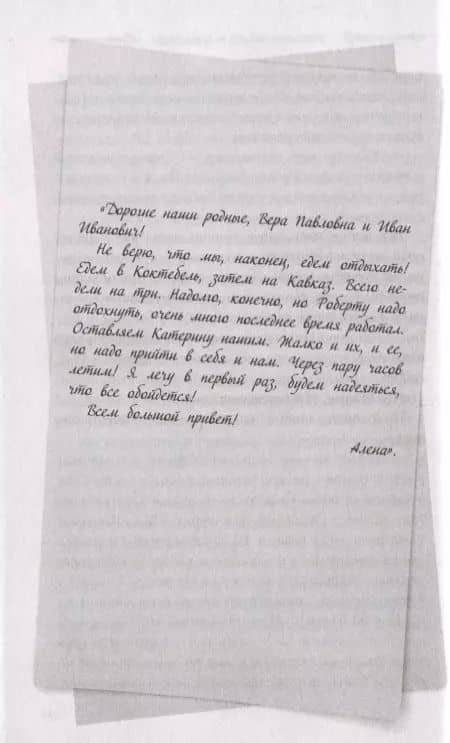 «Дорогие наши родные, Вера Павловна и Иван
Иванович!
Не верю, что мы, наконец, едем отдыхать!
Едем в Коктебель, затем на Кавказ. Всего не-
дели на три. Надолго, конечно, но Роберту надо
отдохнуть, очень много последнее время работал.
Оставляем Катерину нашим. Жалко и их, и ее,
но надо прийти в себя и нам. Через пару часов
летим! Я лечу в первый раз, будем надеяться,
что все обойдется!
Всем большой привет!
Алена».